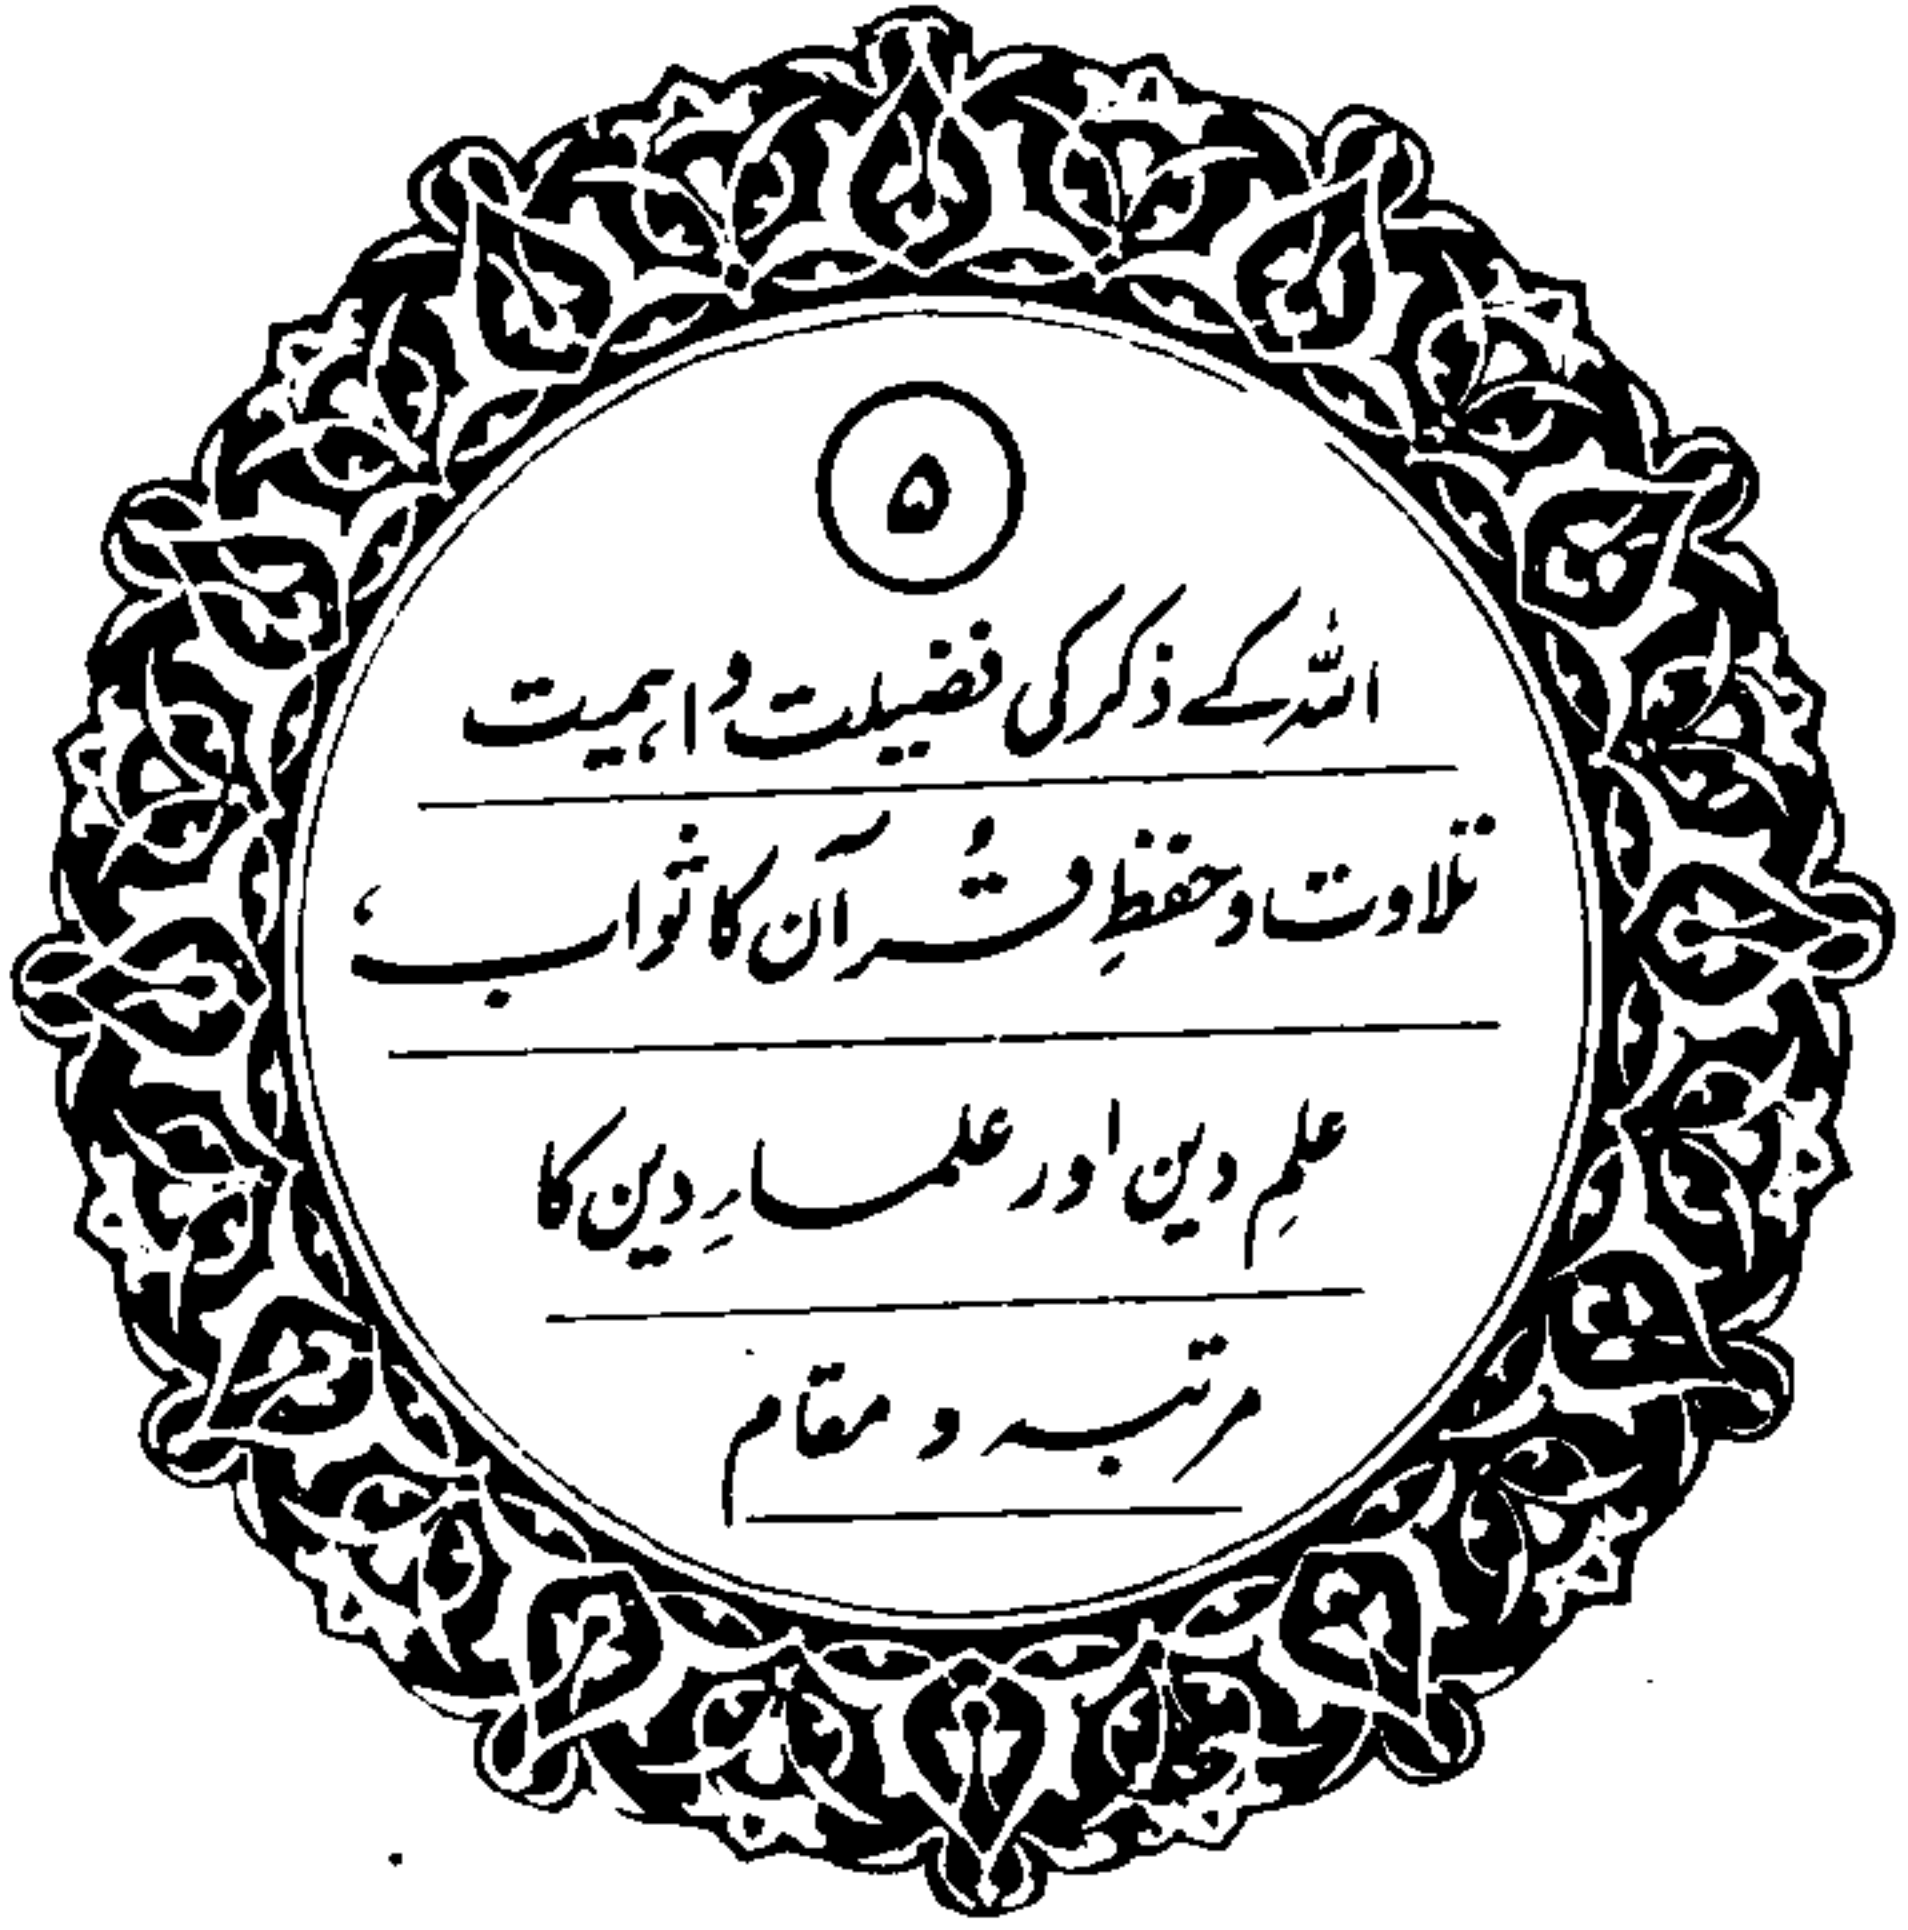 ۵
اللہ کے ذکر کی فضیلت و اہمیت
تلاوت و حفظِ قرآن کا ثواب،
علمِ دین اور علماءِ دین کا
مرتبہ و مقام